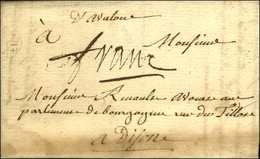 D'avalon
à Monsieur
franc
Monsieur Renault avocat au
parlement de bourgogne rue du Tillot
a Dijon